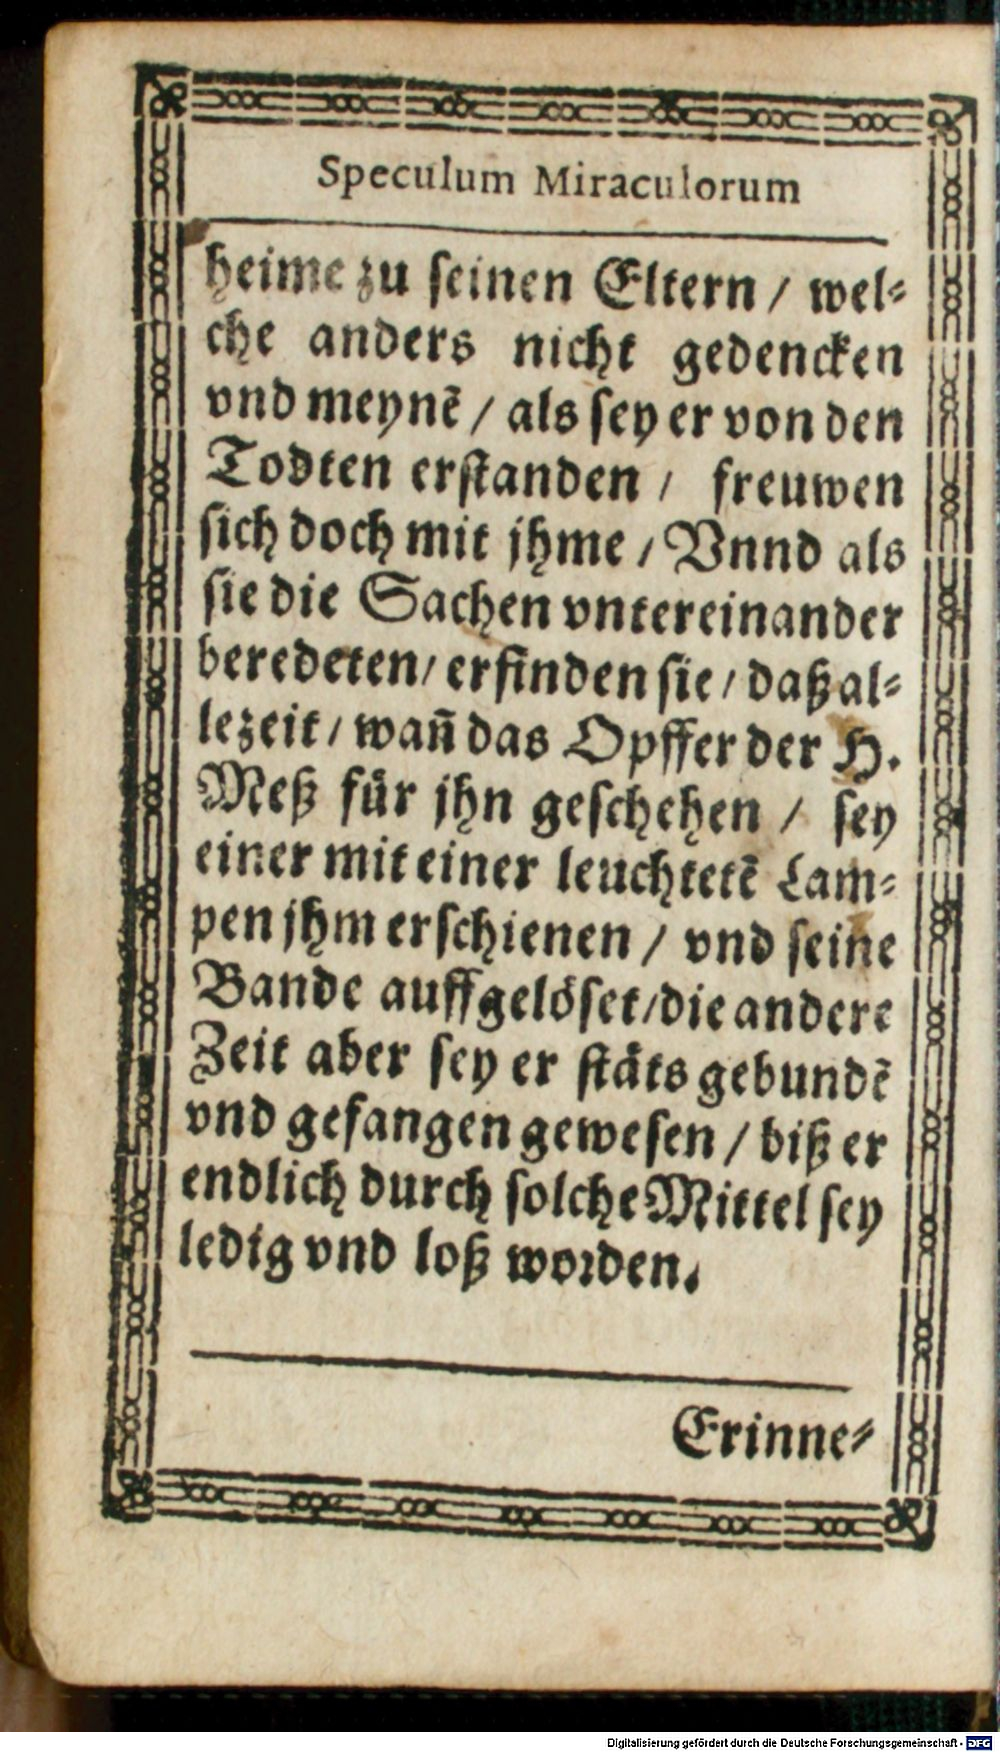 Speculum Miraculorum
heime zu seinen Eltern / wel-
che anders nicht gedencken
vnd meynē / als sey er von den
Todten erstanden / freuwen
sich doch mit jhme / Vnnd als
sie die Sachen vntereinander
beredeten / erfinden sie / daß al-
lezeit / wañ das Opffer der H.
Meß für jhn geschehen / sey
einer mit einer leuchtetē Lam-
pen jhm erschienen / vnd seine
Bande auffgelöset / die andere
Zeit aber sey er stäts gebundē
vnd gefangen gewesen / biß er
endlich durch solche Mittel sey
ledig vnd loß worden.
Erinne-
Digitalisierung gefördert durch die Deutsche Forschungsgemeinschaft - DFG